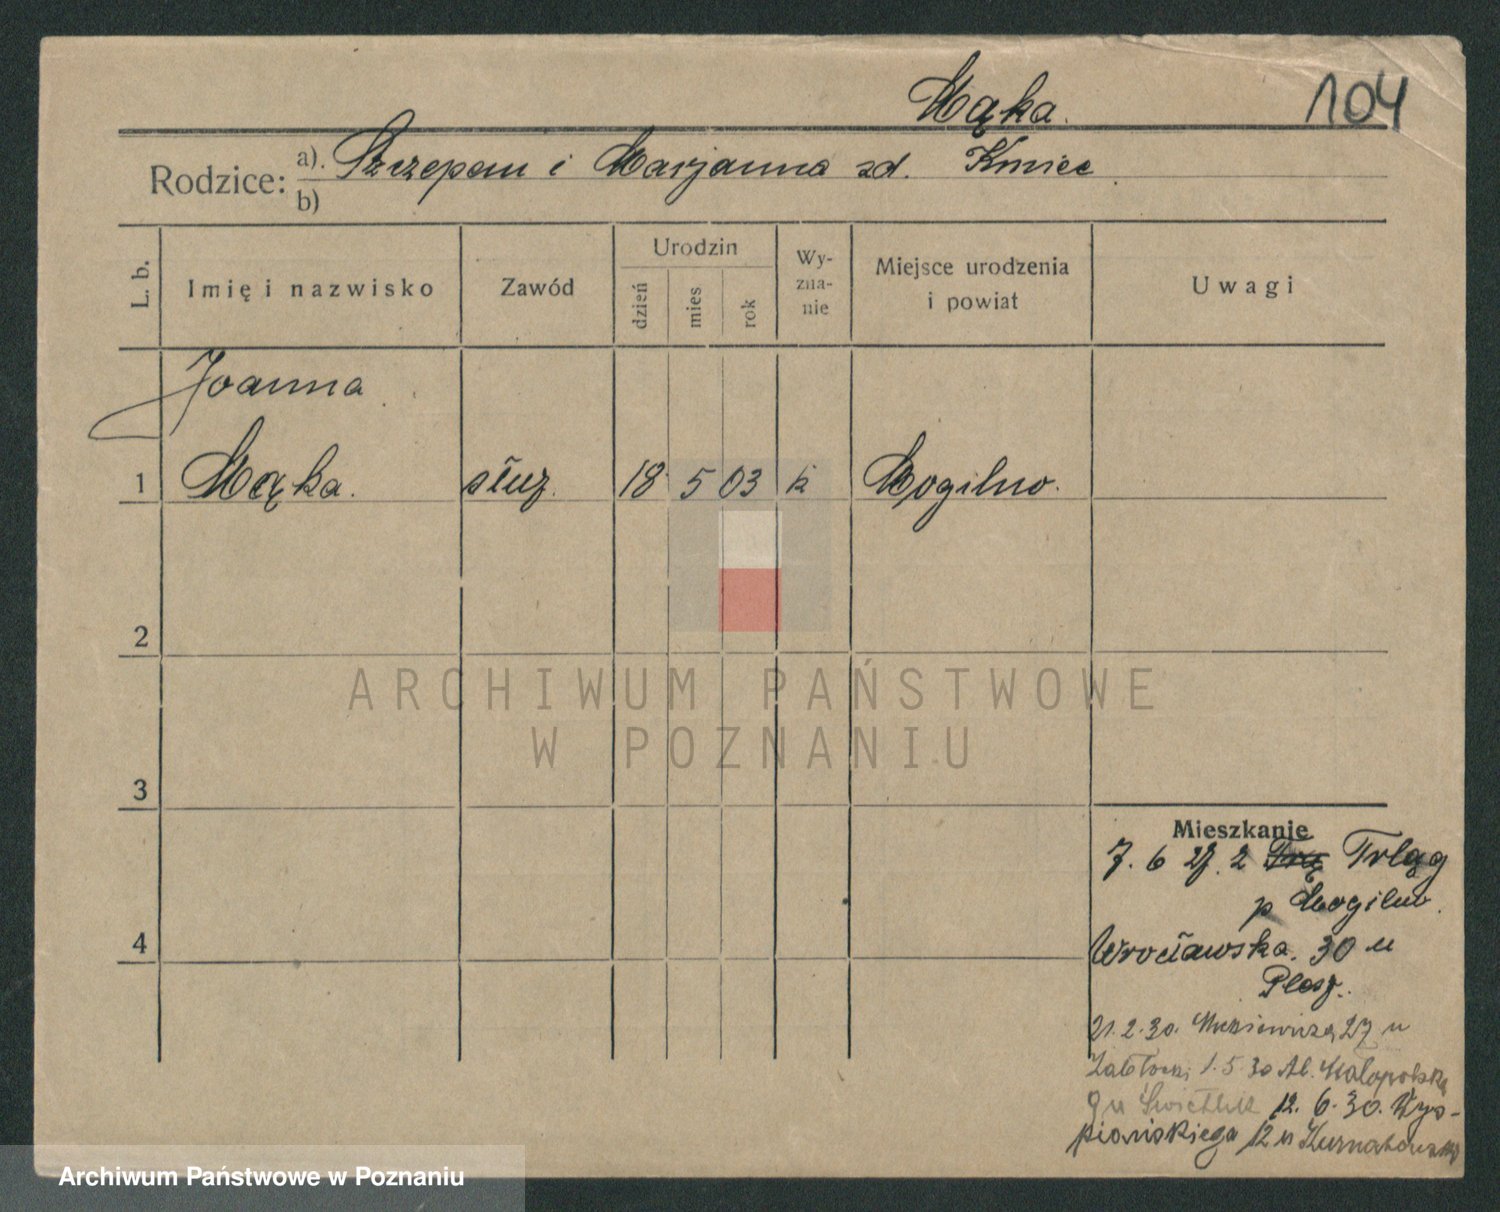 Mąka.
104
Rodzice: a). Szczepan i Marjanna zd. Kmiec
b)
L. b.
Imię i nazwisko
Zawód
Urodzin
dzień
mies
rok
Wy-
zna-
nie
Miejsce urodzenia
i powiat
Uwagi
Joanna
1 Mąka. służ. 18 5 03 k Mogilno.
2
3
4
ARCHIWUM PAŃSTWOWE
W POZNANIU
Mieszkanie
7. 6 27. z Trląg
p Mogilno.
Wrocławska. 30 u
21. 2. 30. 27 u
1. 5. 30 Al. Małopolska
9 u 12. 6. 30. Wys-
piańskiego 12 u
Archiwum Państwowe w Poznaniu